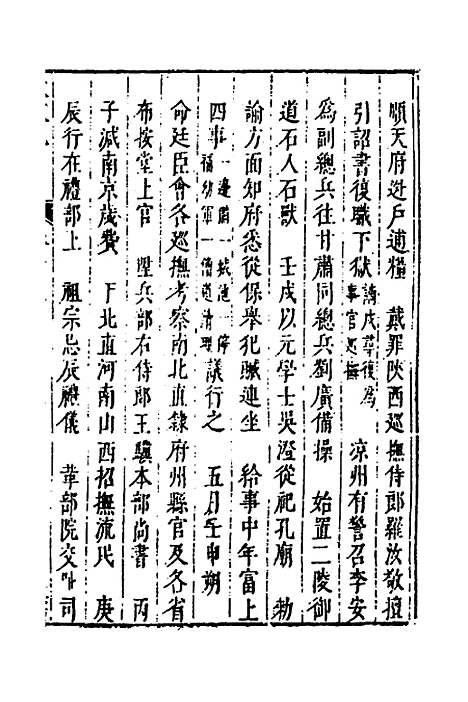 順天府逃戶逋糧　戴罪陝西巡撫侍郎羅汝敬擅
引詔書復職下獄謫戍尋復為事官巡撫　涼州有警召李安
為副總兵往甘肅同總兵劉廣備操　始置二陵御
道石人石獸　壬戌以元學士吳澄從祀孔廟　勅
諭方面知府悉從保舉犯贓連坐　給事中年富上
四事一邊備一城池一停補幼軍一僧道清理議行之　五月壬申朔
命廷臣會各巡撫考察南北直隸府州縣官及各省
布按堂上官　陞兵部右侍郎王驥本部尚書　丙
子減南京歲費　下北直河南山西招撫流民　庚
辰行在禮部上　祖宗忌辰禮儀　革部院交阯司